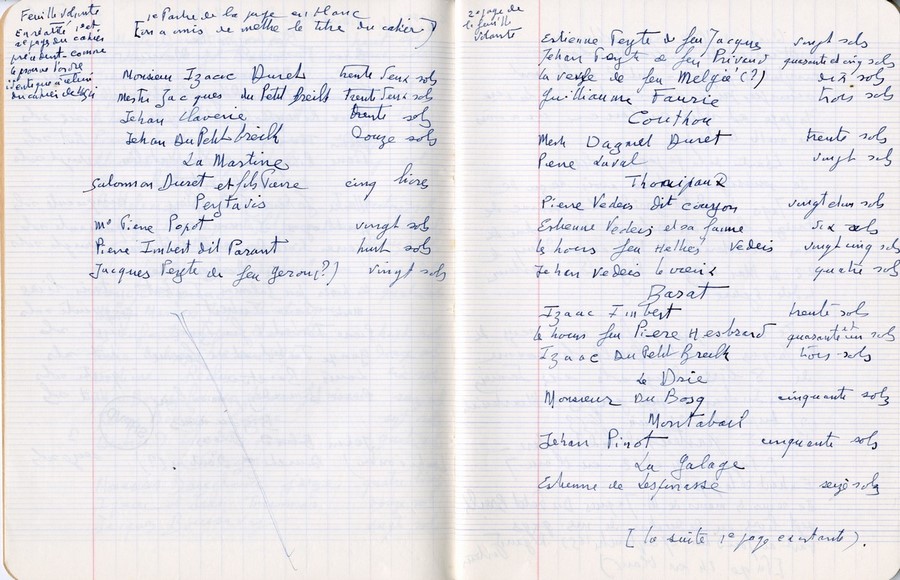 Feuille volante
En réalité 1e et
2e pages du cahier
précédent - comme
le prouve l'ordre
identique à celui
du cahier de
1e Partie de la page en blanc
[on a omis de mettre le titre du cahier)
Monsieur Izaac Duret trente deux sols
Mestre Jacques du Petit Breilh trente deux sols
Jehan Claverie trente sols
Jehan Du Petit breilh douze sols
La Martine
Salomon Duret et fils Pierre cinq livres
Peytavis
Me Piere Popot vingt sols
Piere Imbert dit Parant huit sols
Jacques Peyte de feu Gerou(?) vingt sols
2e page de
la feuille
volante
Estienne Peyte de feu Jacques vingt sols
Jehan Peyte de feu Privand quarante et cinq sols
la vesve de feu Melgié(?) dix sols
Guilliaume Faurie trois sols
Couthou
Mestr Dagniel Duret trente sols
Piere Laval vingt sols
Thomipaux
Piere Vedeis dit couzson vingt et un sols
Estienne Vedeis et sa fame six sols
le hoirs feu Helhes Vedeis vingt cinq sols
Jehan Vedeis le vieux quatre sols
Barat
Izaac Imbert trente sols
le hoirs feu Piere Hesbrard quarante et un sols
Izaac Du Petit breilh trois sols
Le Drie
Monsieur Du Bosq cinquante sols
Montabarl
Jehan Pinot cinquante sols
La Galage
Estienne de Lespinasse seize sols
[la suite 1e page existante).